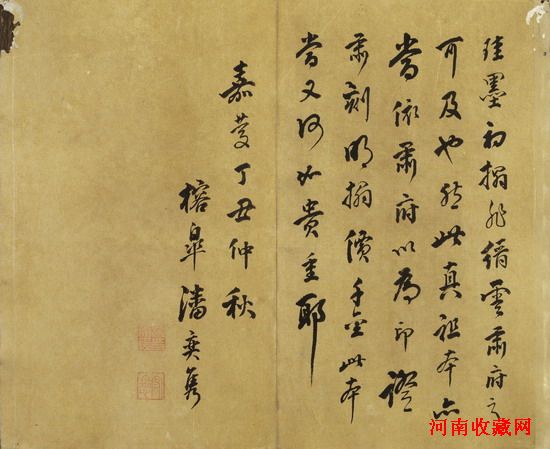 珪墨初搨非縉雲肅府之
可及也然此真祖本亦
當依肅府以為印證
肅刻明搨價千金此本
當又何如貴重耶
嘉慶丁丑仲秋
榕皋潘奕雋
河南收藏网